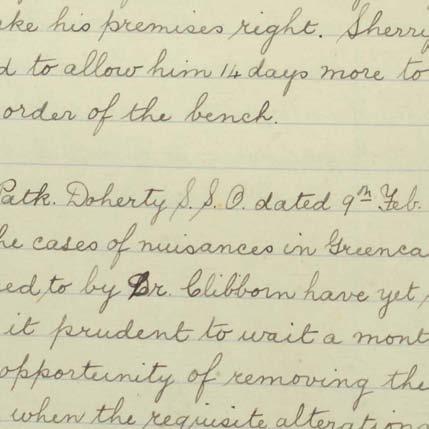 ke his premises right. Sherry
d to allow him 14 days more to
order of the bench.
Patk. Doherty S.S.O. dated 9th Feb.
he cases of nuisances in Greenca
ed to by Dr. Clibborn have yet
it prudent to wait a mont
opportunity of removing the
when the requisite alteration